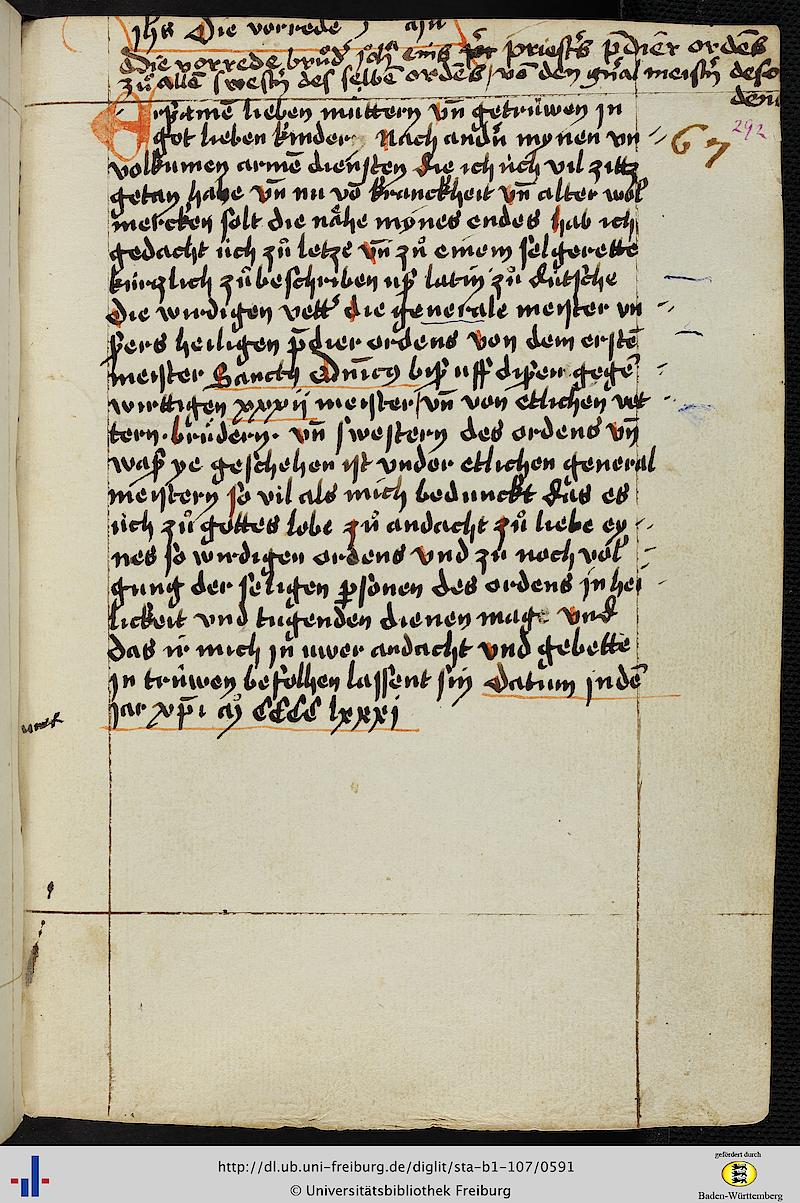 jhs Die vorrede
Die vorrede brůd' joh eins priest's p̄dier ordēs
zů allē swest'n des selbē ordēs / vō den gn̄al meist'n des o
dens
Ersamē lieben můttern vn̄ getrüwen in
got lieben kinder Nach andn̄ mynen vn
volkumen armē diensten die ich üch vil zittz
getan habe vn̄ nu vō kranckheit vn̄ alter wol
mercken solt die nähe mynes endes hab ich
gedacht üch zů letze vn̄ zů einem selgerette
kürzlich zů beschriben uß latin zů dütsche
die wirdigen vett' die generale meister vn
sers heiligen p̄dier ordens von dem erstē
meister Sancto dn̄ico biß uff disen gegē
wirttigen xxxij meister / vn̄ von etlichen vet
tern · brüdern · vn̄ swestern des ordens vn̄
waß ye geschehen ist vnder etlichen general
meistern so vil als mich beduncket das es
üch zů gottes lobe zů andacht zů liebe ey
nes so wirdigen ordens vnd zů noch vol
gung der seligen p̱sonen des ordens in hei
lickeit vnd tugenden dienen mag vnd
das ir mich in uwer andacht vnd gebette
in trüwen befolhen lassent sin Datum in dē
jar xp̄i m CCCC lxxxj
67
292
http://dl.ub.uni-freiburg.de/diglit/sta-b1-107/0591
© Universitätsbibliothek Freiburg
gefördert durch
Baden-Württemberg